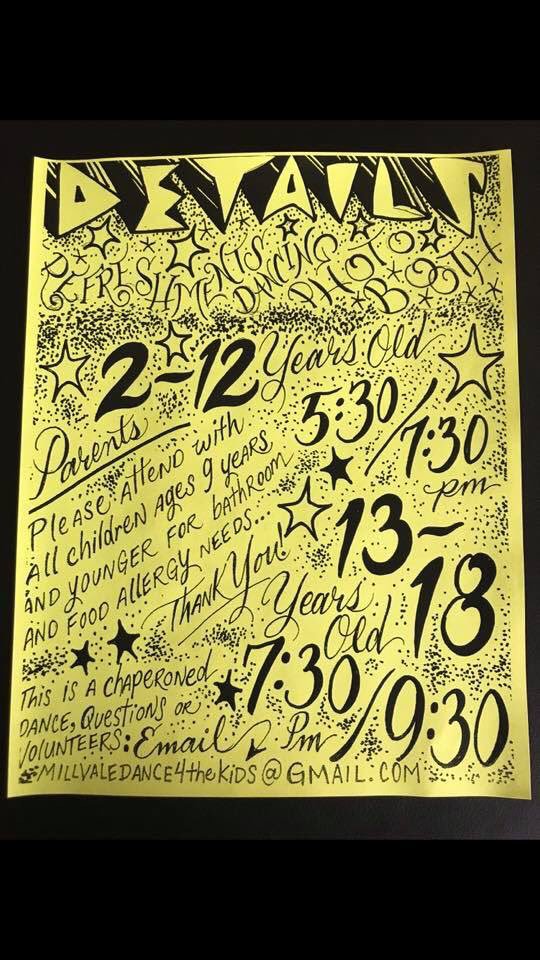 DETAILS
REFRESHMENTS DANCING PHOTO BOOTH
2-12 Years Old
5:30/7:30 pm
Parents
Please attend with
All children Ages 9 years
AND YOUNGER FOR bathroom
AND FOOD ALLERGY NEEDS...
THANK You!
13-18
Years Old
7:30/9:30
Pm
This is A CHAPERONED
DANCE, QUESTIONS OR
VOLUNTEERS: Email
MILLVALEDANCE4theKIDS@GMAIL.COM